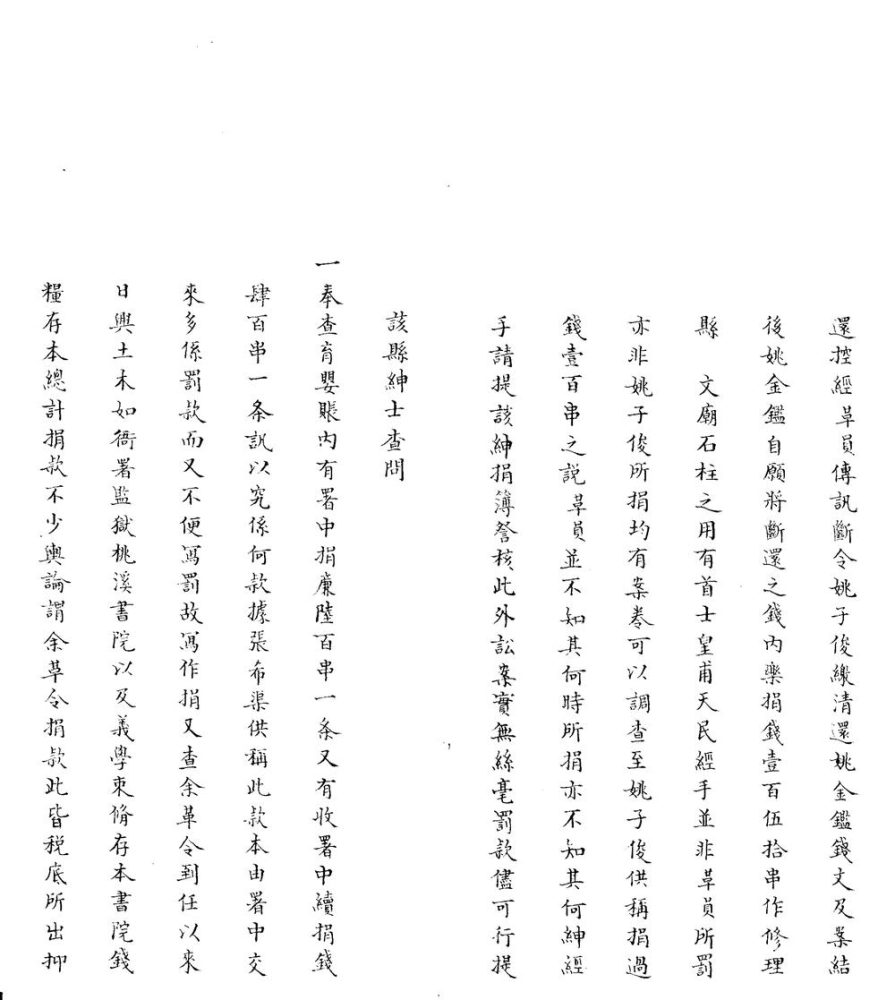 還控經草員傳訊斷令姚子俊繳清還姚金鑑錢文及案結
後姚金鑑自願將斷還之錢內樂捐錢壹百伍拾串作修理
縣　文廟石柱之用有首士皇甫天民經手並非草員所罰
亦非姚子俊所捐均有案卷可以調查至姚子俊供稱捐過
錢壹百串之説草員並不知其何時所捐亦不知其何紳經
手請提該紳捐簿詧核此外訟案實無絲毫罰款儘可行提
該縣紳士查問
一奉查育嬰賬內有署中捐廉陸百串一条又有收署中續捐錢
肆百串一条訊以究係何款據張希渠供稱此款本由署中交
來多係罰款而又不便寫罰故寫作捐又查余革令到任以來
日興土木如衙署監獄桃溪書院以及義學束脩存本書院錢
糧存本總計捐款不少輿論謂余革令捐款此皆税底所出抑